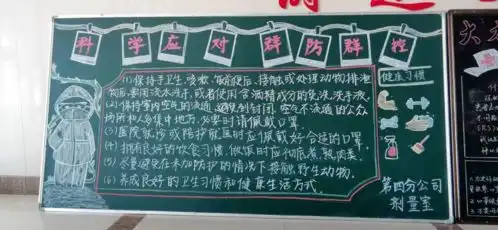 科学应对 群防群控
(1)保持手卫生,咳嗽、饭前便后、接触或处理动物排泄
物后,要用流水洗手,或者使用含酒精成分的免洗洗手液.
(2)保持室内空气的流通,避免到封闭、空气不流通的公众
场所和人多集中地方,必要时请佩戴口罩.
(3)医院就诊或陪护就医时应佩戴好合适的口罩.
(4)拥有良好的饮食习惯,做饭时应彻底煮熟肉菜.
(5)尽量避免在未加防护的情况下接触野生动物.
(6)养成良好的卫生习惯和健康生活方式.
健康习惯
第四分公司
剂量室